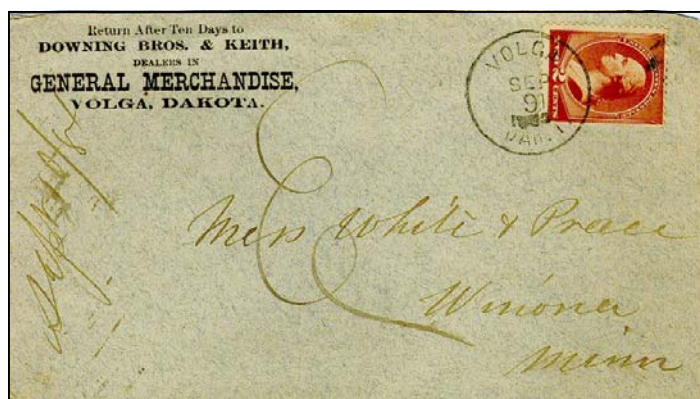 Return After Ten Days to
DOWNING BROS. & KEITH,
DEALERS IN
GENERAL MERCHANDISE,
VOLGA, DAKOTA.
VOLGA
SEP
DAK.
2 CENTS
Mess White &
Winona
Minn